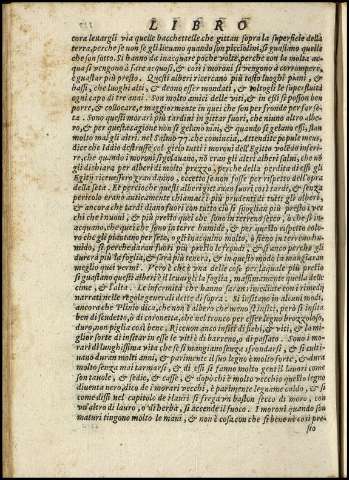 LIBRO
cora leuargli via quelle bacchettelle che gittan sopra la superficie della
terra, perche se non se gli lieuano quando son picciolini, si guastano quelle
che son sotto. Si hanno da inacquare poche volte, perche con la molta ac-
qua si vengono à fare acquosi, & cosi i moroni si vengono à corrompere,
è guastar più presto. Questi alberi ricercano più tosto luoghi piani, &
bassi, che luoghi alti, & deono esser mondati, & toltogli le superfluità
ogni capo di tre anni. Son molto amici delle viti, & in essi si posson ben
porre, & collocare, e maggiormente in quei che son per fronde per far se-
ta. Sono questi morari più tardini in gittar fuori, che niuno altro albe-
ro, & per questa cagione non si gelano mai, & quando si gelano essi, stan
molto mal gli altri. nel Salmo 77. che comincia, Attendite popule meus,
dice che Iddio destrusse col gielo tutti i moroni dell'Egitto volédo inferi-
re, che quando i moroni si gelauano, nō eran gli altri alberi salui, che nō
gli disturba per alberi di molto prezzo, perche della perdita di essi gli
Egittij riceuessero gran danno, eccetto se non fosse per rispetto dell'opra
della seta. Et percioche questi alberi gittauan fuori cosi tardi, & senza
pericolo eran anticamente chiamati più prudenti di tutti gli alberi,
& ancora che tardi diano fuori con tutto ciò si spoglian più presto i vec
chi che i nuoui, & più presto quei che sono in terreno secco, ò che si in-
acquano, che quei che sono in terre humide, & per questo rispetto colo-
ro che gli piantano per seta, ogli inacquino molto, ò sieno in terreno hu-
mido, si perche daran fiutti più presto le frondi, & si anco perche gli
durerà più la foglia, & sarà più tenera, & in questo modo la mangieran
meglio quei vermi. Però è ch'è vna delle cose per laquale più presto
si guastano questi alberi è il leuargli la foglia, massimamente quella delle
cime, & l'alta. Le infermità che hanno saran rimediate con i rimedij
narrati nelle regole generali dette di sopra. Si insitano in alcuni modi,
ancora che Plinio dica, che non è albero che meno s'insiti, però si insita
ben di scudetto, ò di coronetta, che nel tronco per esser legno brozzoloso,
duro, non piglia cosi bene. Riceuon anco insiti di fichi, & viti, & la mi-
glior sorte di insitar in esse le viti è di barreno, ò di passato. Sono i mo-
rari di lunghissima vita che se si mangiano senza sfrondarsi, & si culti-
uano duran molti anni, & parimente il suo legno è molto forte, & dura
molto senza mai tarmarsi, & di essi si fanno molto gentil lauori come
son tauole, & sedie, & casse, & dopo ch'è molto vecchio questo legno
diuenta nero, dico de i morari vecchi, è parimente legname caldo, & si
come dissi nel capitolo de i lauri si frega vn baston secco di moro, con
vn'altro di lauro, o di herba, si accende il fuoco. I moroni quando son
maturi tingono molto le mani, & non è cosa con che si leue cosi pre-
sto